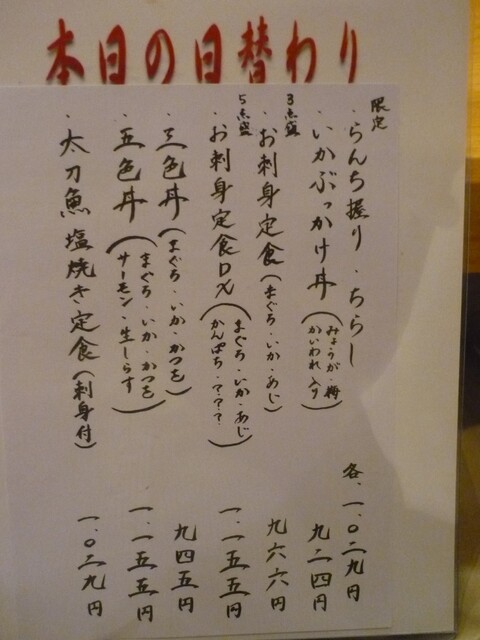 本日の日替わり
限定
・らんち握り・ちらし 各、一、〇二九円
・いかぶっかけ丼（みょうが・梅 かいわれ入り） 九二四円
3点盛
・お刺身定食（まぐろ・いか・あじ） 九六六円
5点盛
・お刺身定食DX（まぐろ・いか・あじ かんぱち・？？？） 一、一五五円
・三色丼（まぐろ・いか・かつを） 九四五円
・五色丼（まぐろ・いか・かつを サーモン・生しらす） 一、一五五円
・太刀魚塩焼き定食（刺身付） 一、〇二九円